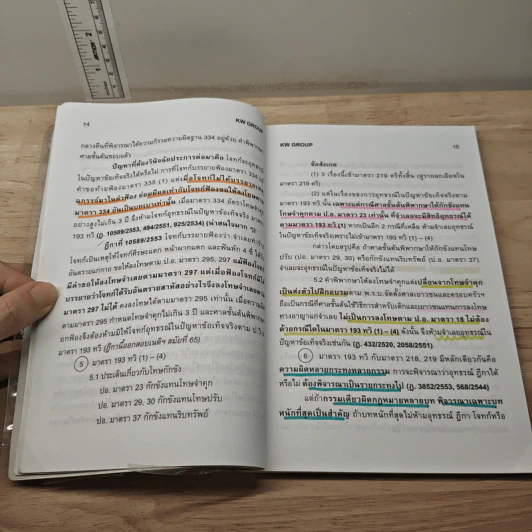 14
KW GROUP
กลางคืนที่พิจารณาได้ความก็รวมความผิดฐาน 334 อยู่ด้วย คำพิพากษา
ศาลชั้นต้นชอบแล้ว
ปัญหาที่ต้องวินิจฉัยประการต่อมาคือ โจทก์จะอุทธรณ์
ในปัญหาข้อเท็จจริงได้หรือไม่ การที่โจทก์บรรยายฟ้องมาตรา 334
คำขอท้ายฟ้องมาตรา 335 (1) แต่
เมื่อโจทก์ไม่ได้บรรยาย
มาในคำฟ้อง ย่อมถือเท่ากับโจทก์ฟ้องขอให้ลงโทษตาม
มาตรา 334 อันเป็นบทเบาเท่านั้น เมื่อมาตรา 334 อัตราโทษจำคุก
อย่างสูงไม่เกิน 3 ปี จึงห้ามโจทก์อุทธรณ์ในปัญหาข้อเท็จจริง
193 ทวิ (ฎ. 10589/2553, 494/2551, 925/2534) (น่าสนใจมาก
ฎีกาที่ 10589/2553 โจทก์บรรยายฟ้องว่า จำเลย
โจทก์เป็นเหตุให้โจทก์ศีรษะแตก หน้าผากแตก และฟันหัก 4 ซี่
อันตรายแก่กาย ขอให้ลงโทษตาม ป.อ. มาตรา 295, 297 แม้ฟ้องโจทก์
มีคำขอให้ลงโทษจำเลยตามมาตรา 297 แต่เมื่อฟ้องโจทก์ไม่ได้
บรรยายว่าโจทก์ได้รับอันตรายสาหัสอย่างไรจึงลงโทษจำเลยตาม
มาตรา 297 ไม่ได้ คงลงโทษได้ตามมาตรา 295 เท่านั้น เมื่อความผิด
ตามมาตรา 295 กำหนดโทษจำคุกไม่เกิน 3 ปี และศาลชั้นต้นพิพากษา
ยกฟ้องจึงต้องห้ามมิให้โจทก์อุทธรณ์ในปัญหาข้อเท็จจริงตาม ป.วิ.อ.
มาตรา 193 ทวิ (ฎีกานี้ออกสอบเนติฯ สมัยที่ 65)
5 มาตรา 193 ทวิ (1) – (4)
5.1 ประเด็นเกี่ยวกับโทษกักขัง
ปอ. มาตรา 23 กักขังแทนโทษจำคุก
ปอ. มาตรา 29, 30 กักขังแทนโทษปรับ
ปอ. มาตรา 37 กักขังแทนริบทรัพย์
KW GROUP
15
ข้อสังเกต
(1) 3 เรื่องนี้เข้ามาตรา 219 ตรีทั้งสิ้น (ดูรายละเอียดใน
มาตรา 219 ตรี)
(2) แต่ในเรื่องของการอุทธรณ์ในปัญหาข้อเท็จจริงตาม
มาตรา 193 ทวิ นั้น เฉพาะแต่กรณีศาลชั้นต้นพิพากษาให้กักขังแทน
โทษจำคุกตาม ป.อ. มาตรา 23 เท่านั้น ที่จำเลยจะมีสิทธิอุทธรณ์ได้
ตามมาตรา 193 ทวิ (1) หากเป็นอีก 2 กรณีที่เหลือ ห้ามจำเลยอุทธรณ์
ในปัญหาข้อเท็จจริงเพราะไม่เข้ามาตรา 193 ทวิ (1) – (4)
กล่าวโดยสรุปคือ ถ้าศาลชั้นต้นพิพากษาให้กักขังแทนโทษ
ปรับ (ปอ. มาตรา 29, 30) หรือกักขังแทนริบทรัพย์ (ป.อ. มาตรา 37)
จำเลยจะอุทธรณ์ในปัญหาข้อเท็จจริงไม่ได้
5.2 คำพิพากษาที่ให้ลงโทษจำคุกแต่เปลี่ยนจากโทษจำคุก
เป็นส่งตัวไปฝึกอบรมตาม พ.ร.บ.จัดตั้งศาลเยาวชนและครอบครัวฯ
ถือเป็นกรณีที่ศาลชั้นต้นใช้วิธีการสำหรับเด็กและเยาวชนแทนการลงโทษ
ทางอาญาแก่จำเลย ไม่เป็นการลงโทษตาม ป.อ. มาตรา 18 ไม่ต้อง
ด้วยกรณีใดในมาตรา 193 ทวิ (1) – (4) ดังนั้น จึงห้ามจำเลยอุทธรณ์ใน
ปัญหาข้อเท็จจริงเช่นกัน (ฎ. 432/2520, 2058/2551)
6 มาตรา 193 ทวิ กับมาตรา 218, 219 มีหลักเดียวกันคือ
ความผิดหลายกระทงหลายกรรม การจะพิจารณาว่าอุทธรณ์ ฎีกาได้
หรือไม่ ต้องพิจารณาเป็นรายกระทงไป (ฎ. 3852/2553, 568/2544)
แต่ถ้ากรรมเดียวผิดกฎหมายหลายบท พิจารณาเฉพาะบท
หนักที่สุดเป็นสำคัญ ถ้าบทหนักที่สุดไม่ห้ามอุทธรณ์ ฎีกา โจทก์หรือ